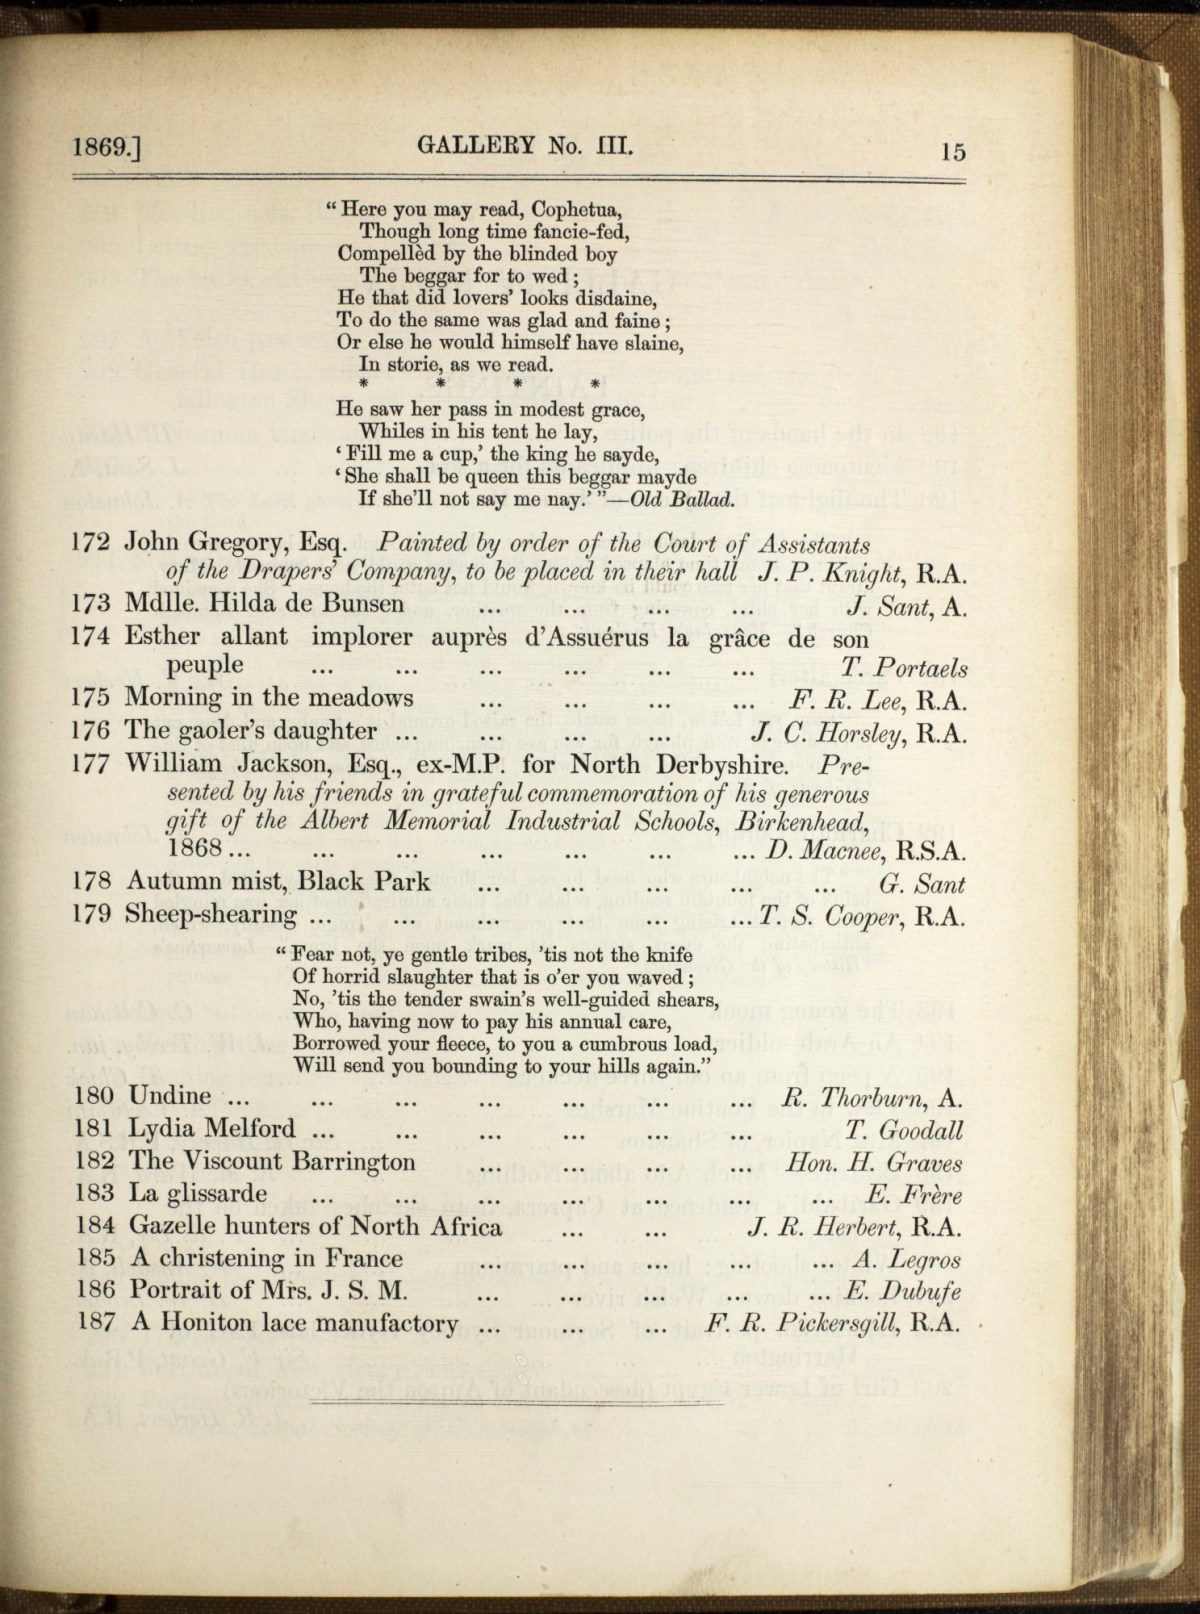 1869.] GALLERY No. III. 15
“Here you may read, Cophetua,
Though long time fancie-fed,
Compellèd by the blinded boy
The beggar for to wed;
He that did lovers’ looks disdaine,
To do the same was glad and faine;
Or else he would himself have slaine,
In storie, as we read.
* * * *
He saw her pass in modest grace,
Whiles in his tent he lay,
‘Fill me a cup,’ the king he sayde,
‘She shall be queen this beggar mayde
If she’ll not say me nay.’”—Old Ballad.
172 John Gregory, Esq. Painted by order of the Court of Assistants
of the Drapers’ Company, to be placed in their hall J. P. Knight, R.A.
173 Mdlle. Hilda de Bunsen ... ... ... ... J. Sant, A.
174 Esther allant implorer auprès d’Assuérus la grâce de son
peuple ... ... ... ... ... ... T. Portaels
175 Morning in the meadows ... ... ... ... F. R. Lee, R.A.
176 The gaoler’s daughter ... ... ... ... J. C. Horsley, R.A.
177 William Jackson, Esq., ex-M.P. for North Derbyshire. Pre-
sented by his friends in grateful commemoration of his generous
gift of the Albert Memorial Industrial Schools, Birkenhead,
1868 ... ... ... ... ... ... ... D. Macnee, R.S.A.
178 Autumn mist, Black Park ... ... ... ... ... G. Sant
179 Sheep-shearing ... ... ... ... ... ... T. S. Cooper, R.A.
“Fear not, ye gentle tribes, ’tis not the knife
Of horrid slaughter that is o’er you waved;
No, ’tis the tender swain’s well-guided shears,
Who, having now to pay his annual care,
Borrowed your fleece, to you a cumbrous load,
Will send you bounding to your hills again.”
180 Undine ... ... ... ... ... ... ... R. Thorburn, A.
181 Lydia Melford ... ... ... ... ... ... T. Goodall
182 The Viscount Barrington ... ... ... ... Hon. H. Graves
183 La glissarde ... ... ... ... ... ... ... E. Frère
184 Gazelle hunters of North Africa ... ... J. R. Herbert, R.A.
185 A christening in France ... ... ... ... ... A. Legros
186 Portrait of Mrs. J. S. M. ... ... ... ... ... E. Dubufe
187 A Honiton lace manufactory ... ... ... F. R. Pickersgill, R.A.